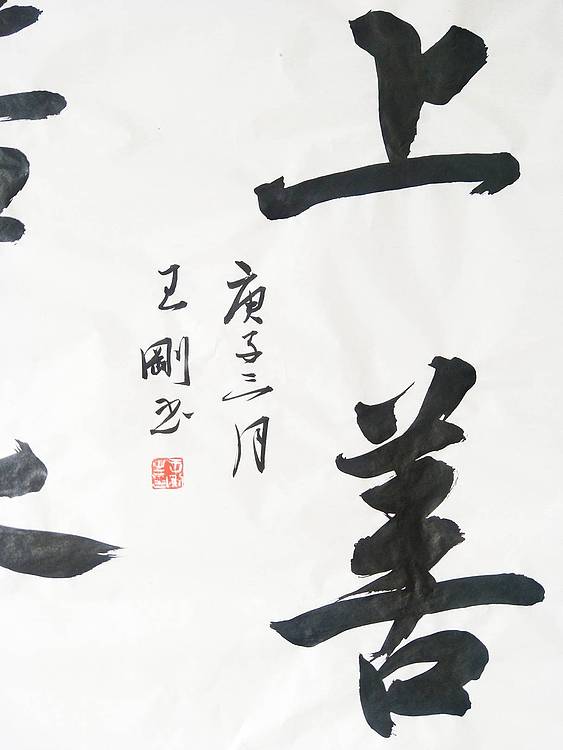 上善
庚子三月
王剛书